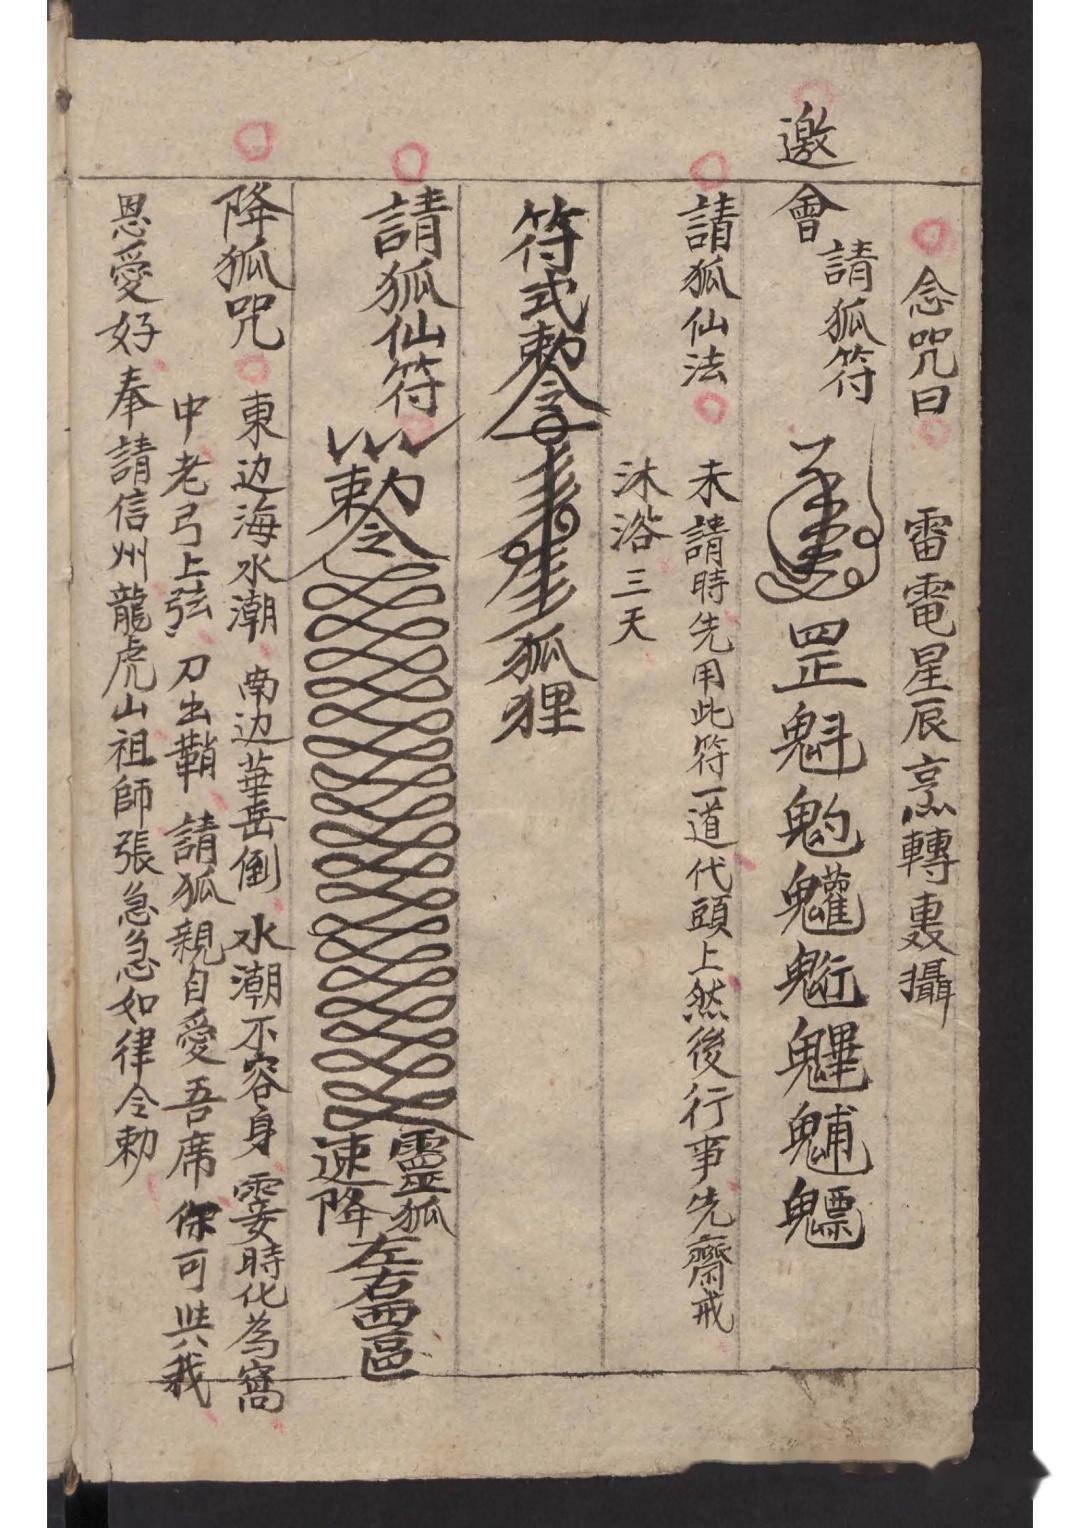 念咒曰 雷電星辰烹轉轟攝
邀會 請狐符 罡魁魓魖
請狐仙法 未請時先用此符一道代頭上然後行事先齋戒
沐浴三天
符式 勅令 狐狸
請狐仙符 勅令 靈狐速降左右
降狐咒 東边海水潮 南边華岳倒 水潮不容身 霎時化為窩
中老弓上弦 刀出鞘 請狐親自愛吾席 你可與我
恩愛好 奉請信州龍虎山祖師張急急如律令勅